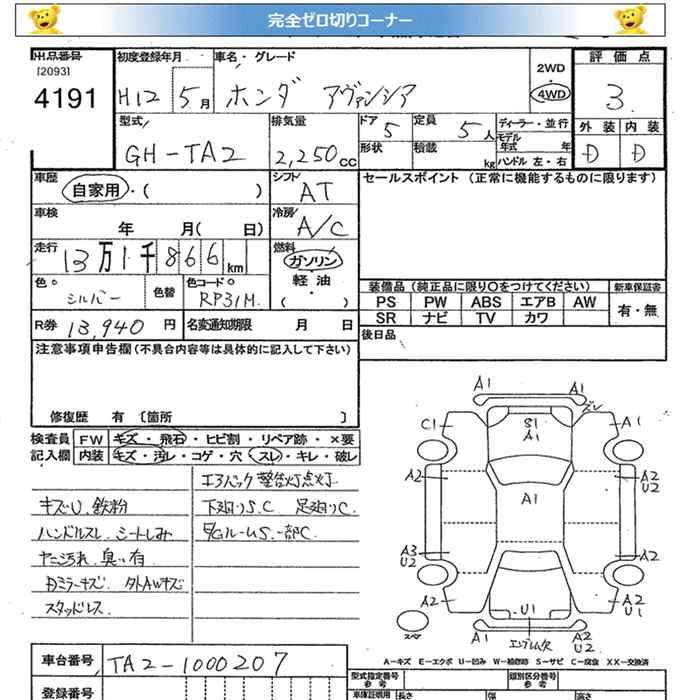 完全ゼロ切りコーナー
出品番号 初度登録年月 車名・グレード 2WD 評価点
[2093]
4191 H12 5月 ホンダ アヴァンシア 4WD 3
型式 排気量 ドア 定員 ディーラー・並行 外装 内装
GH-TA2 2,250cc 5 5人 モデル年式 年 D D
形状 積載 kg ハンドル 左・右
車歴 自家用・( ) シフト AT セールスポイント (正常に機能するものに限ります)
車検 年 月( 日) 冷房 A/C
走行 13万1千866km 燃料 ガソリン・軽油・( )
色 シルバー 色替 色コード RP31M 装備品 (純正品に限り○をつけてください) 新車保証書
PS PW ABS エアB AW 有・無
SR ナビ TV カワ
R券 13,940円 名変通知期限 月 日 後日品
注意事項申告欄(不具合内容等は具体的に記入して下さい)
修復歴 有 〔箇所 〕
検査員 FW キズ・飛石・ヒビ割・リペア跡・×要
記入欄 内装 キズ・汚レ・コゲ・穴・スレ・キレ・破レ
エアバック警告灯点灯
キズU.鉄粉 下廻りS.C 足廻りC.
ハンドルスレ.シートしみ E/GルームS.一部C.
ヤニ汚れ.臭い有
Dミラーキズ. タイトAWキズ
スタッドレス.
A1 A1 ズレ
C1 S1 A1 A1
A2 A1 A2 U2
A3 U2 A2
A2 U1 A2 U1
スペア A1 エンブレム欠 A2 U2
A-キズ E-エクボ U-凹み W-補修跡 S-サビ C-腐食 XX-交換済
車台番号 TA2-1000207 型式指定番号 参考 類別区分番号 参考
登録番号 車庫証明用 長さ 幅 高さ